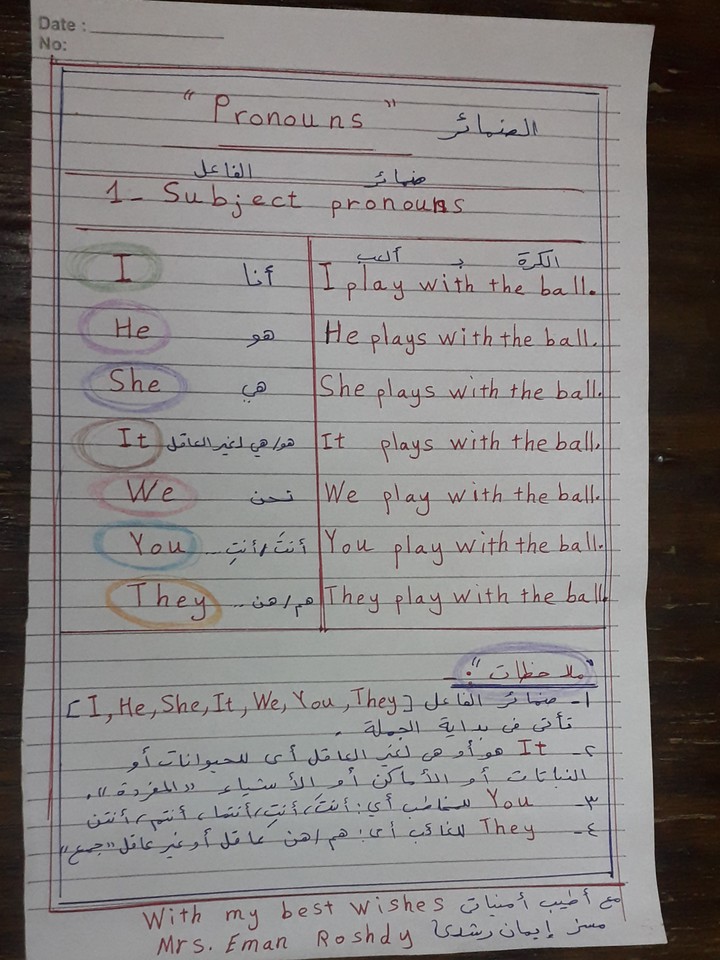 Date :
No:
" Pronouns " الضمائر
ضمائر الفاعل
1- Subject pronouns
ألعب بـ الكرة
I أنا I play with the ball.
He هو He plays with the ball.
She هي She plays with the ball.
It هو/هي لغير العاقل It plays with the ball.
We نحن We play with the ball.
You أنتَ/أنتِ... You play with the ball.
They هم/هن... They play with the ball.
"ملاحظات":-
١- ضمائر الفاعل [I, He, She, It, We, You, They]
تأتى فى بداية الجملة .
٢- It هو أو هى لغير العاقل أى للحيوانات أو
النباتات أو الأماكن أو الأشياء "المفردة".
٣- You للمخاطب أي: أنتَ، أنتِ/أنتما، أنتم/أنتن
٤- They للغائب أى: هم/هن عاقل أو غير عاقل "جمع"
With my best wishes مع أطيب أمنياتى
Mrs. Eman Roshdy مسز إيمان رشدى